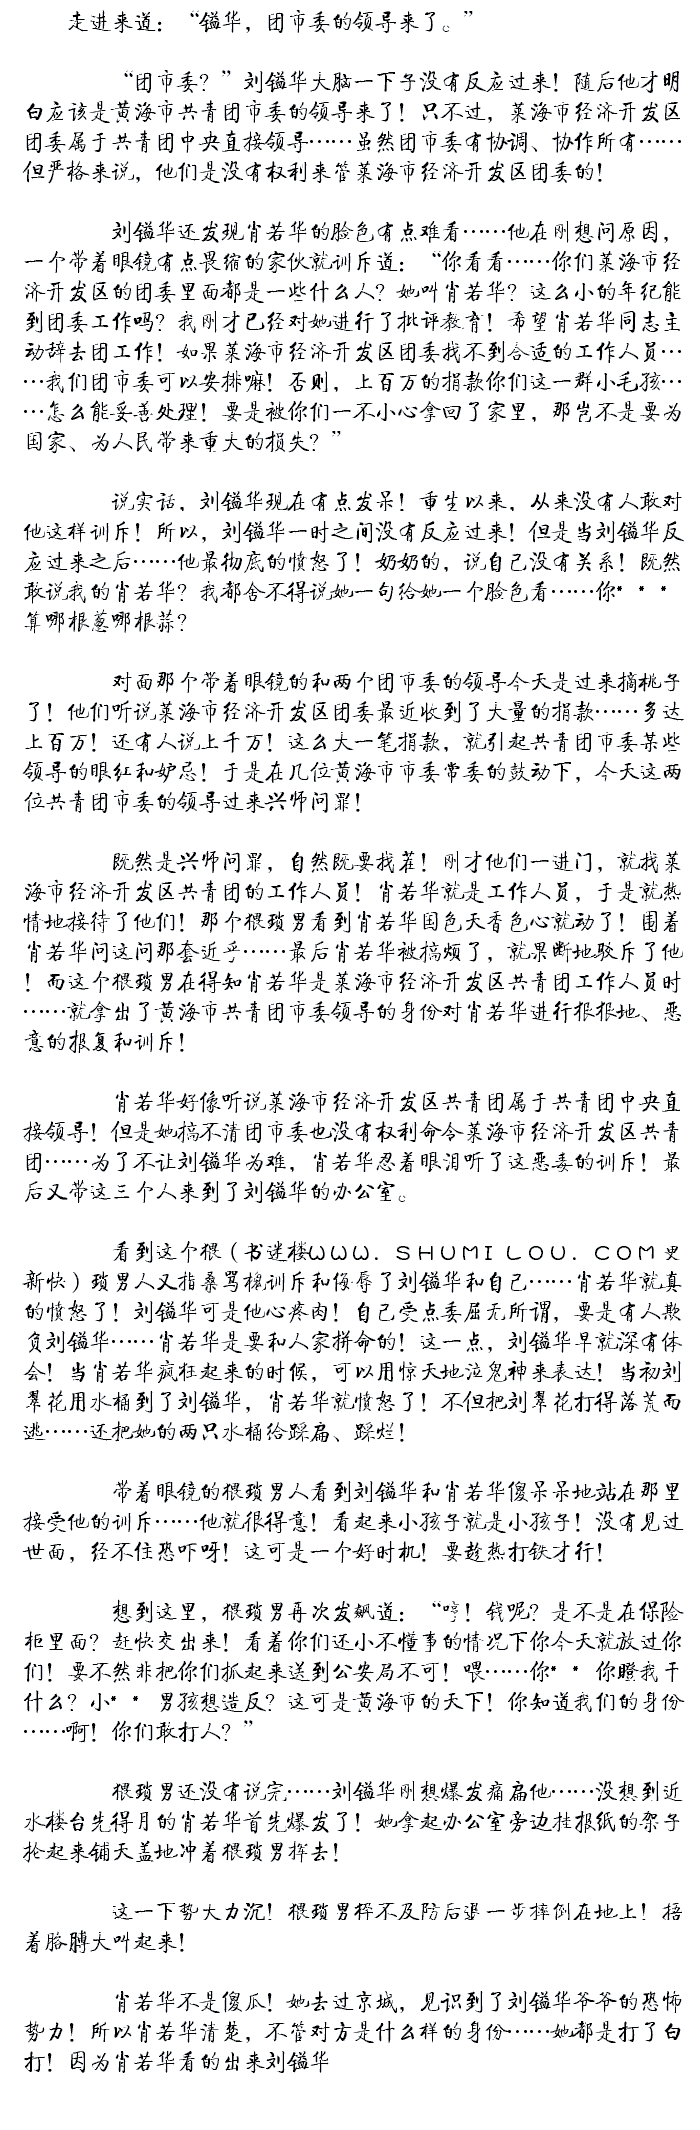 走进来道：“镒华，团市委的领导来了。”
“团市委？”刘镒华大脑一下子没有反应过来！随后他才明
白应该是黄海市共青团市委的领导来了！只不过，莱海市经济开发区
团委属于共青团中央直接领导……虽然团市委有协调、协作所有……
但严格来说，他们是没有权利来管莱海市经济开发区团委的！
刘镒华还发现肖若华的脸色有点难看……他在刚想问原因，
一个带着眼镜有点畏缩的家伙就训斥道：“你看看……你们莱海市经
济开发区的团委里面都是一些什么人？她叫肖若华？这么小的年纪能
到团委工作吗？我刚才已经对她进行了批评教育！希望肖若华同志主
动辞去团工作！如果莱海市经济开发区团委找不到合适的工作人员…
…我们团市委可以安排嘛！否则，上百万的捐款你们这一群小毛孩…
…怎么能妥善处理！要是被你们一不小心拿回了家里，那岂不是要为
国家、为人民带来重大的损失？”
说实话，刘镒华现在有点发呆！重生以来，从来没有人敢对
他这样训斥！所以，刘镒华一时之间没有反应过来！但是当刘镒华反
应过来之后……他最彻底的愤怒了！奶奶的，说自己没有关系！既然
敢说我的肖若华？我都舍不得说她一句给她一个脸色看……你***
算哪根葱哪根蒜？
对面那个带着眼镜的和两个团市委的领导今天是过来摘桃子
了！他们听说莱海市经济开发区团委最近收到了大量的捐款……多达
上百万！还有人说上千万！这么大一笔捐款，就引起共青团市委某些
领导的眼红和妒忌！于是在几位黄海市市委常委的鼓动下，今天这两
位共青团市委的领导过来兴师问罪！
既然是兴师问罪，自然既要找茬！刚才他们一进门，就找莱
海市经济开发区共青团的工作人员！肖若华就是工作人员，于是就热
情地接待了他们！那个猥琐男看到肖若华国色天香色心就动了！围着
肖若华问这问那套近乎……最后肖若华被搞烦了，就果断地驳斥了他
！而这个猥琐男在得知肖若华是莱海市经济开发区共青团工作人员时
……就拿出了黄海市共青团市委领导的身份对肖若华进行狠狠地、恶
意的报复和训斥！
肖若华好像听说莱海市经济开发区共青团属于共青团中央直
接领导！但是她搞不清团市委也没有权利命令莱海市经济开发区共青
团……为了不让刘镒华为难，肖若华忍着眼泪听了这恶委的训斥！最
后又带这三个人来到了刘镒华的办公室。
看到这个猥（书迷楼ＷＷＷ．ＳＨＵＭＩＬＯＵ．ＣＯＭ更
新快）琐男人又指桑骂槐训斥和侮辱了刘镒华和自己……肖若华就真
的愤怒了！刘镒华可是他心疼肉！自己受点委屈无所谓，要是有人欺
负刘镒华……肖若华是要和人家拼命的！这一点，刘镒华早就深有体
会！当肖若华疯狂起来的时候，可以用惊天地泣鬼神来表达！当初刘
翠花用水桶到了刘镒华，肖若华就愤怒了！不但把刘翠花打得落荒而
逃……还把她的两只水桶给踩扁、踩烂！
带着眼镜的猥琐男人看到刘镒华和肖若华傻呆呆地站在那里
接受他的训斥……他就很得意！看起来小孩子就是小孩子！没有见过
世面，经不住恐吓呀！这可是一个好时机！要趁热打铁才行！
想到这里，猥琐男再次发飙道：“哼！钱呢？是不是在保险
柜里面？赶快交出来！看着你们还小不懂事的情况下你今天就放过你
们！要不然非把你们抓起来送到公安局不可！喂……你**你瞪我干
什么？小**男孩想造反？这可是黄海市的天下！你知道我们的身份
……啊！你们敢打人？”
猥琐男还没有说完……刘镒华刚想爆发痛扁他……没想到近
水楼台先得月的肖若华首先爆发了！她拿起办公室旁边挂报纸的架子
抡起来铺天盖地冲着猥琐男挥去！
这一下势大力沉！猥琐男猝不及防后退一步摔倒在地上！捂
着胳膊大叫起来！
肖若华不是傻瓜！她去过京城，见识到了刘镒华爷爷的恐怖
势力！所以肖若华清楚，不管对方是什么样的身份……她都是打了白
打！因为肖若华看的出来刘镒华